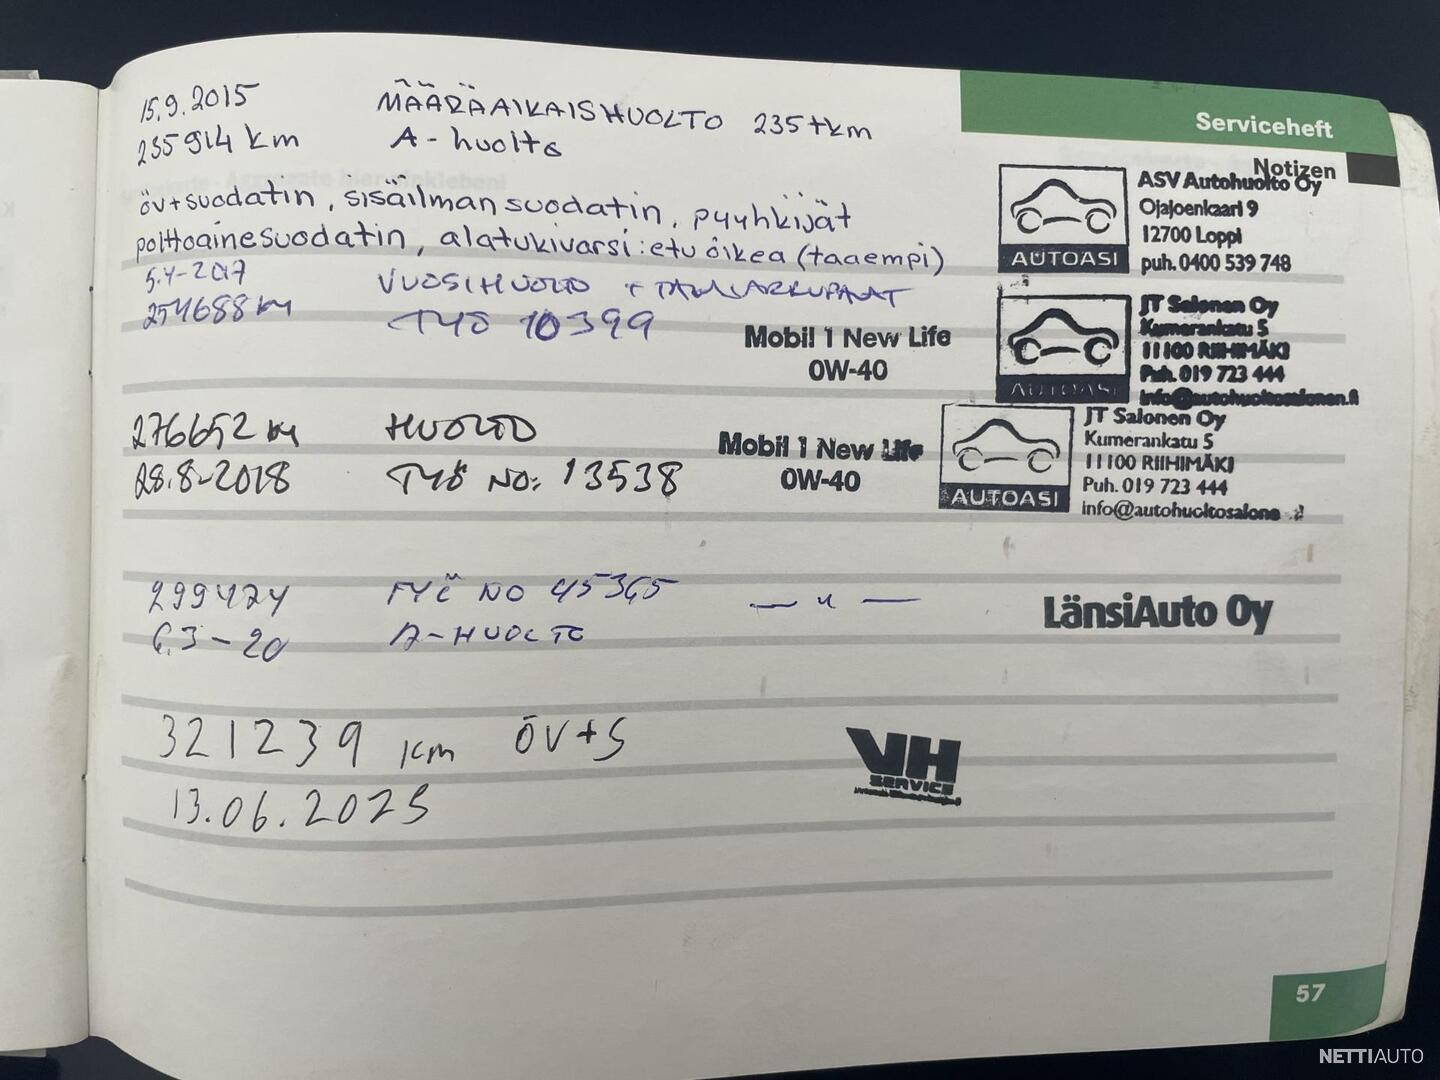 Serviceheft
Notizen
15.9.2015 MÄÄRÄAIKAISHUOLTO 235tkm
235914 km A-huolto
ASV Autohuolto Oy
Ojajoenkaari 9
12700 Loppi
puh. 0400 539 748
AUTOASI
öv+suodatin, sisäilmansuodatin, pyyhkijät
polttoainesuodatin, alatukivarsi:etu oikea (taaempi)
5.4-2017 VUOSIHUOLTO + JARRUPALAT
254688 km TYÖ 10399
Mobil 1 New Life
0W-40
JT Salonen Oy
Kumerankatu 5
11100 RIIHIMÄKI
Puh. 019 723 444
info@autohuoltosalonen.fi
AUTOASI
276652 km HUOLTO
28.8-2018 TYÖ NO: 13538
Mobil 1 New Life
0W-40
JT Salonen Oy
Kumerankatu 5
11100 RIIHIMÄKI
Puh. 019 723 444
info@autohuoltosalone
AUTOASI
299424 TYÖ NO 45365 — " —
6.3-20 A-HUOLTO
LänsiAuto Oy
321239 km ÖV+S
13.06.2025
VH
SERVICE
57
NETTIAUTO